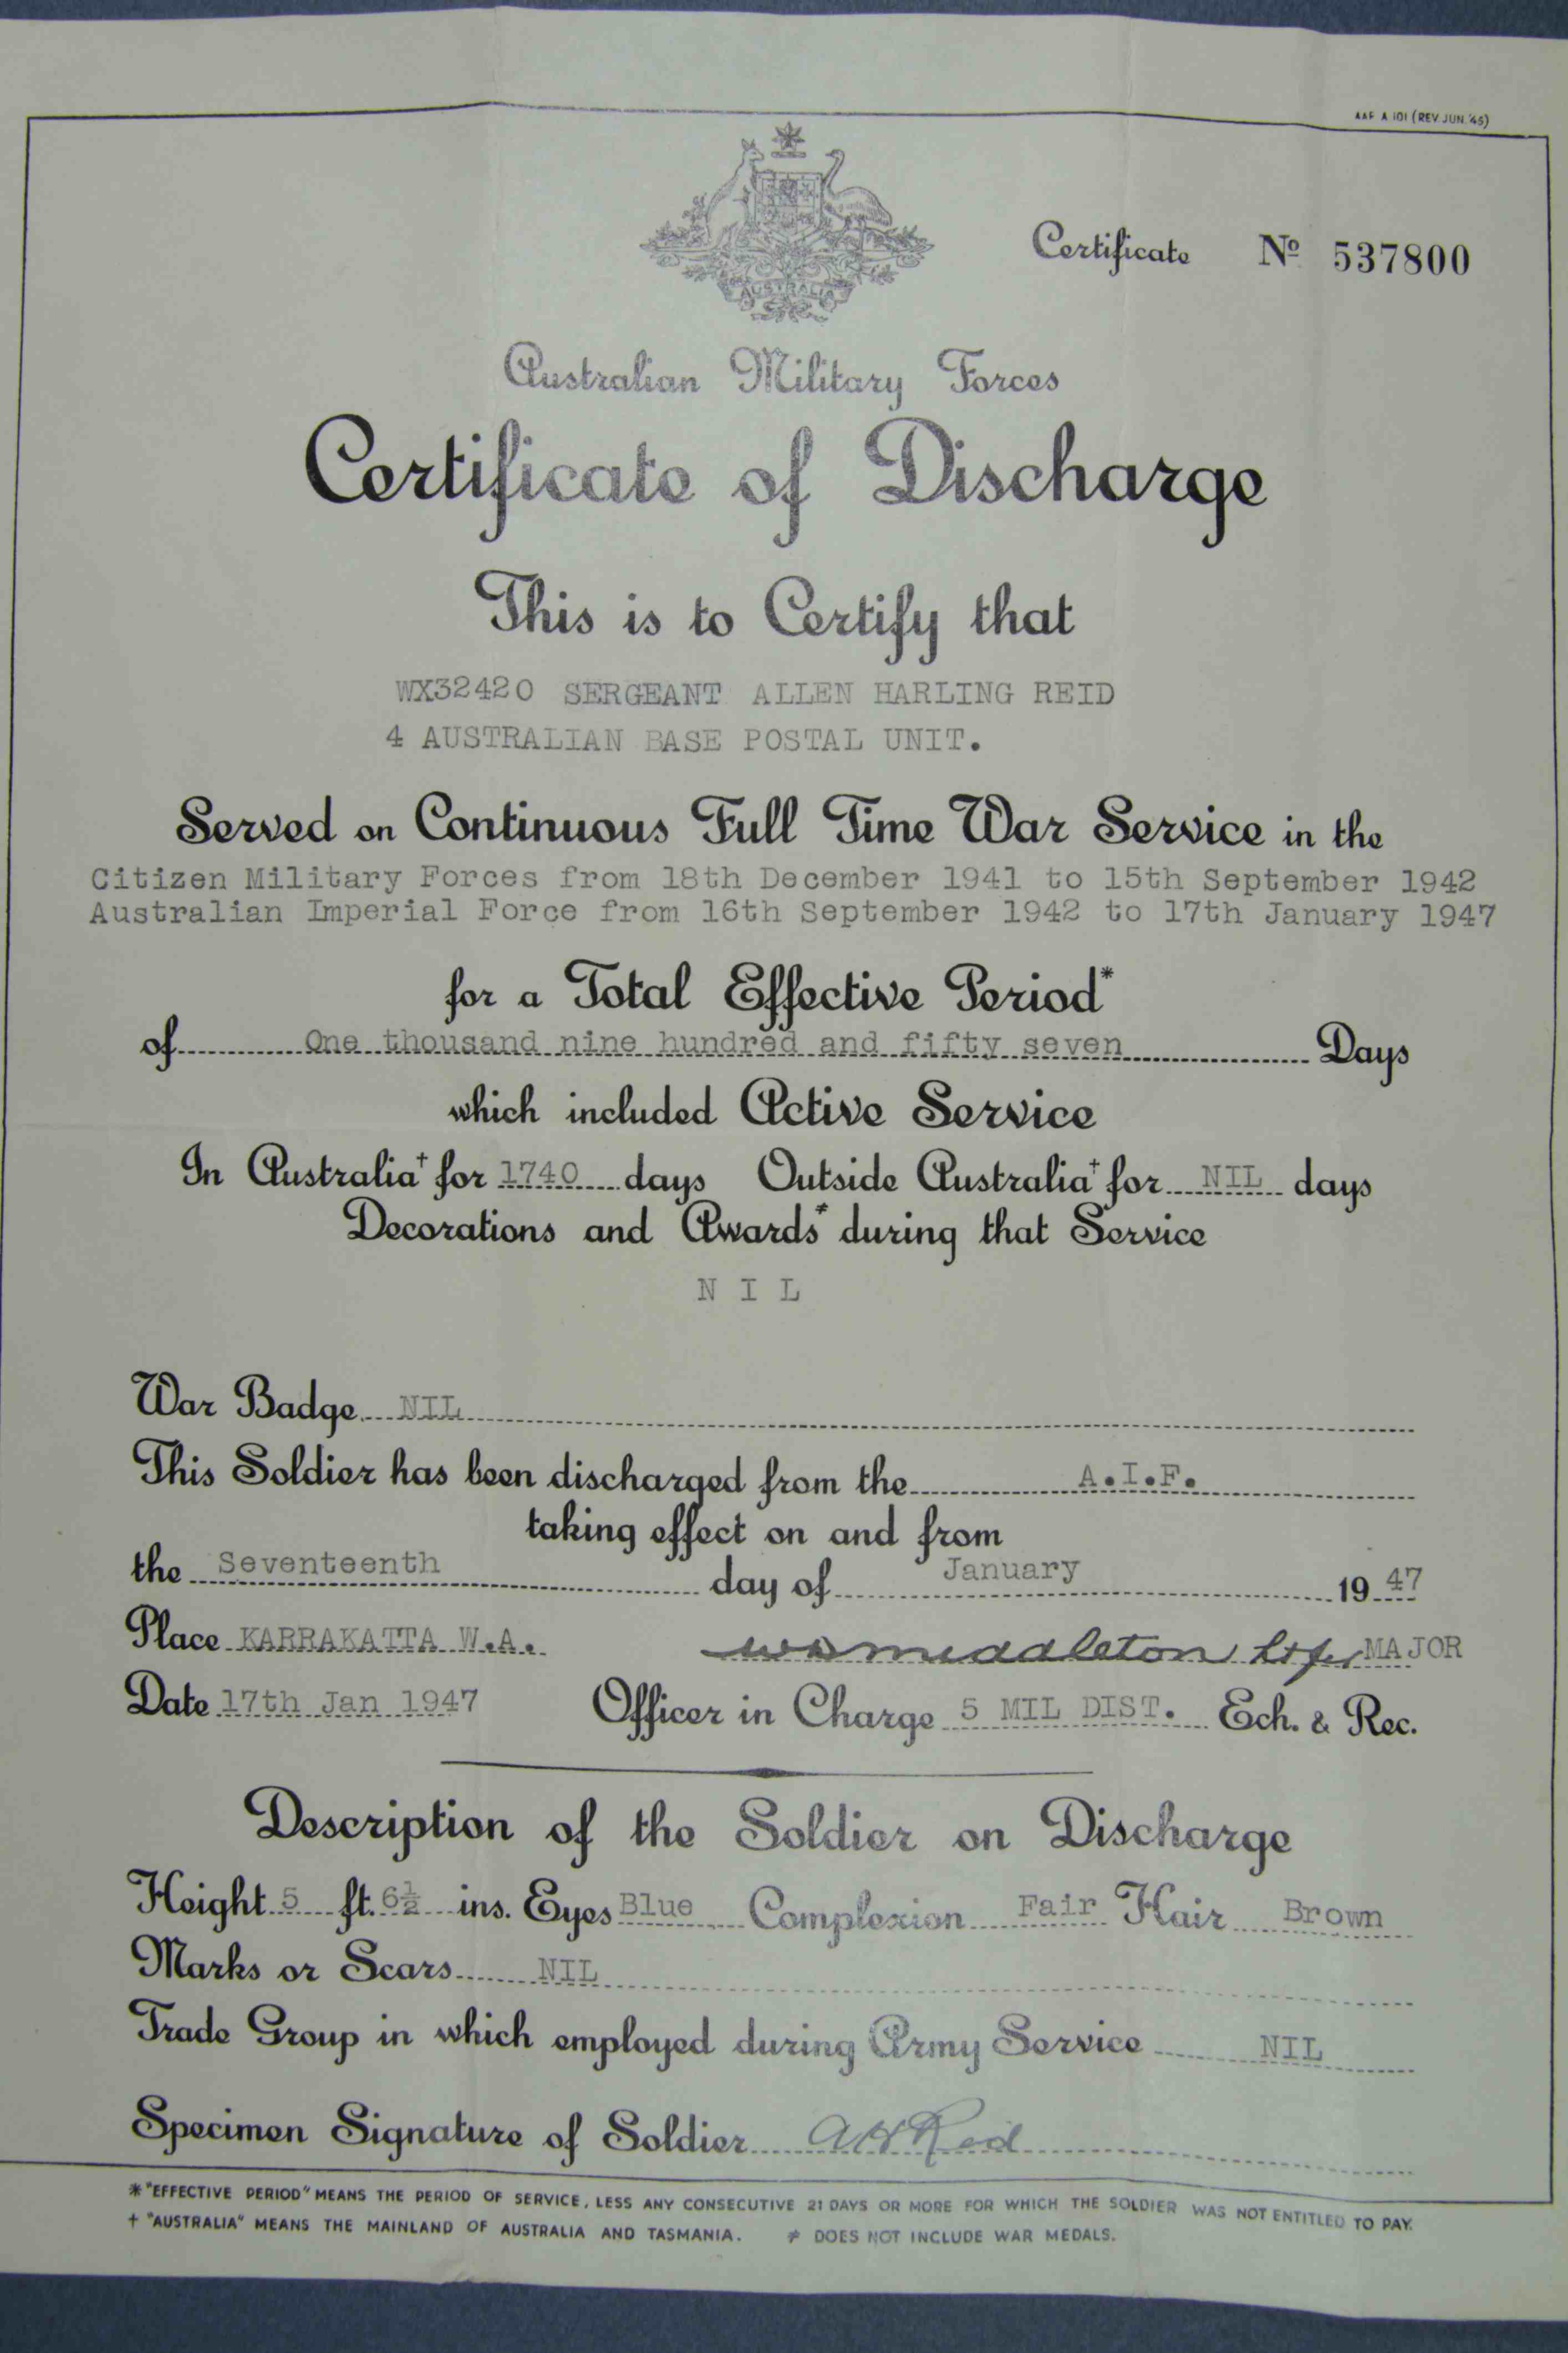 AAF A 101 (REV. JUN. '45)
AUSTRALIA
Certificate Nº 537800
Australian Military Forces
Certificate of Discharge
This is to Certify that
WX32420 SERGEANT ALLEN HARLING REID
4 AUSTRALIAN BASE POSTAL UNIT.
Served on Continuous Full Time War Service in the
Citizen Military Forces from 18th December 1941 to 15th September 1942
Australian Imperial Force from 16th September 1942 to 17th January 1947
for a Total Effective Period*
of One thousand nine hundred and fifty seven Days
which included Active Service
In Australia† for 1740 days Outside Australia† for NIL days
Decorations and Awards≠ during that Service
N I L
War Badge NIL
This Soldier has been discharged from the A.I.F.
taking effect on and from
the Seventeenth day of January 19 47
Place KARRAKATTA W.A. Middleton MAJOR
Date 17th Jan 1947 Officer in Charge 5 MIL DIST. Ech. & Rec.
Description of the Soldier on Discharge
Height 5 ft. 6½ ins. Eyes Blue Complexion Fair Hair Brown
Marks or Scars NIL
Trade Group in which employed during Army Service NIL
Specimen Signature of Soldier A H Reid
* "EFFECTIVE PERIOD" MEANS THE PERIOD OF SERVICE, LESS ANY CONSECUTIVE 21 DAYS OR MORE FOR WHICH THE SOLDIER WAS NOT ENTITLED TO PAY.
† "AUSTRALIA" MEANS THE MAINLAND OF AUSTRALIA AND TASMANIA. ≠ DOES NOT INCLUDE WAR MEDALS.